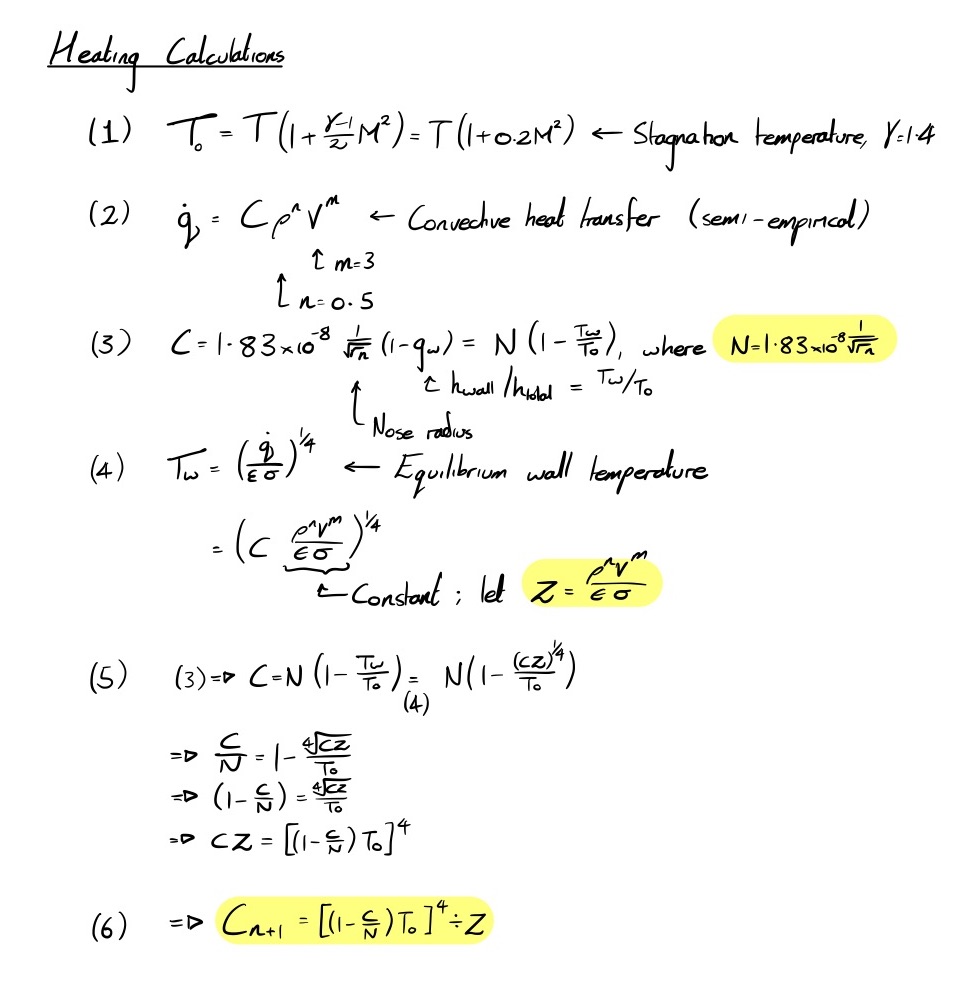 Heating Calculations
(1) T₀ = T(1 + γ-1/2 M²) = T(1+0.2M²) ← Stagnation temperature, γ=1.4
(2) q̇ = CρⁿVᵐ ← Convective heat transfer (semi-empirical)
↑ m=3
↑ n=0.5
(3) C = 1.83×10⁻⁸ 1/√rₙ (1-g_w) = N(1 - T_w/T₀), where N=1.83×10⁻⁸ 1/√rₙ
↑ h_wall/h_total = T_w/T₀
↑ Nose radius
(4) T_w = (q̇/εσ)^¼ ← Equilibrium wall temperature
= (C ρⁿVᵐ/εσ)^¼
← Constant ; let Z = ρⁿVᵐ/εσ
(5) (3) ⇒ C = N(1 - T_w/T₀) =(4) N(1 - (CZ)^¼/T₀)
⇒ C/N = 1 - ⁴√CZ/T₀
⇒ (1 - C/N) = ⁴√CZ/T₀
⇒ CZ = [(1 - C/N)T₀]⁴
(6) ⇒ Cₙ₊₁ = [(1 - C/N)T₀]⁴ ÷ Z